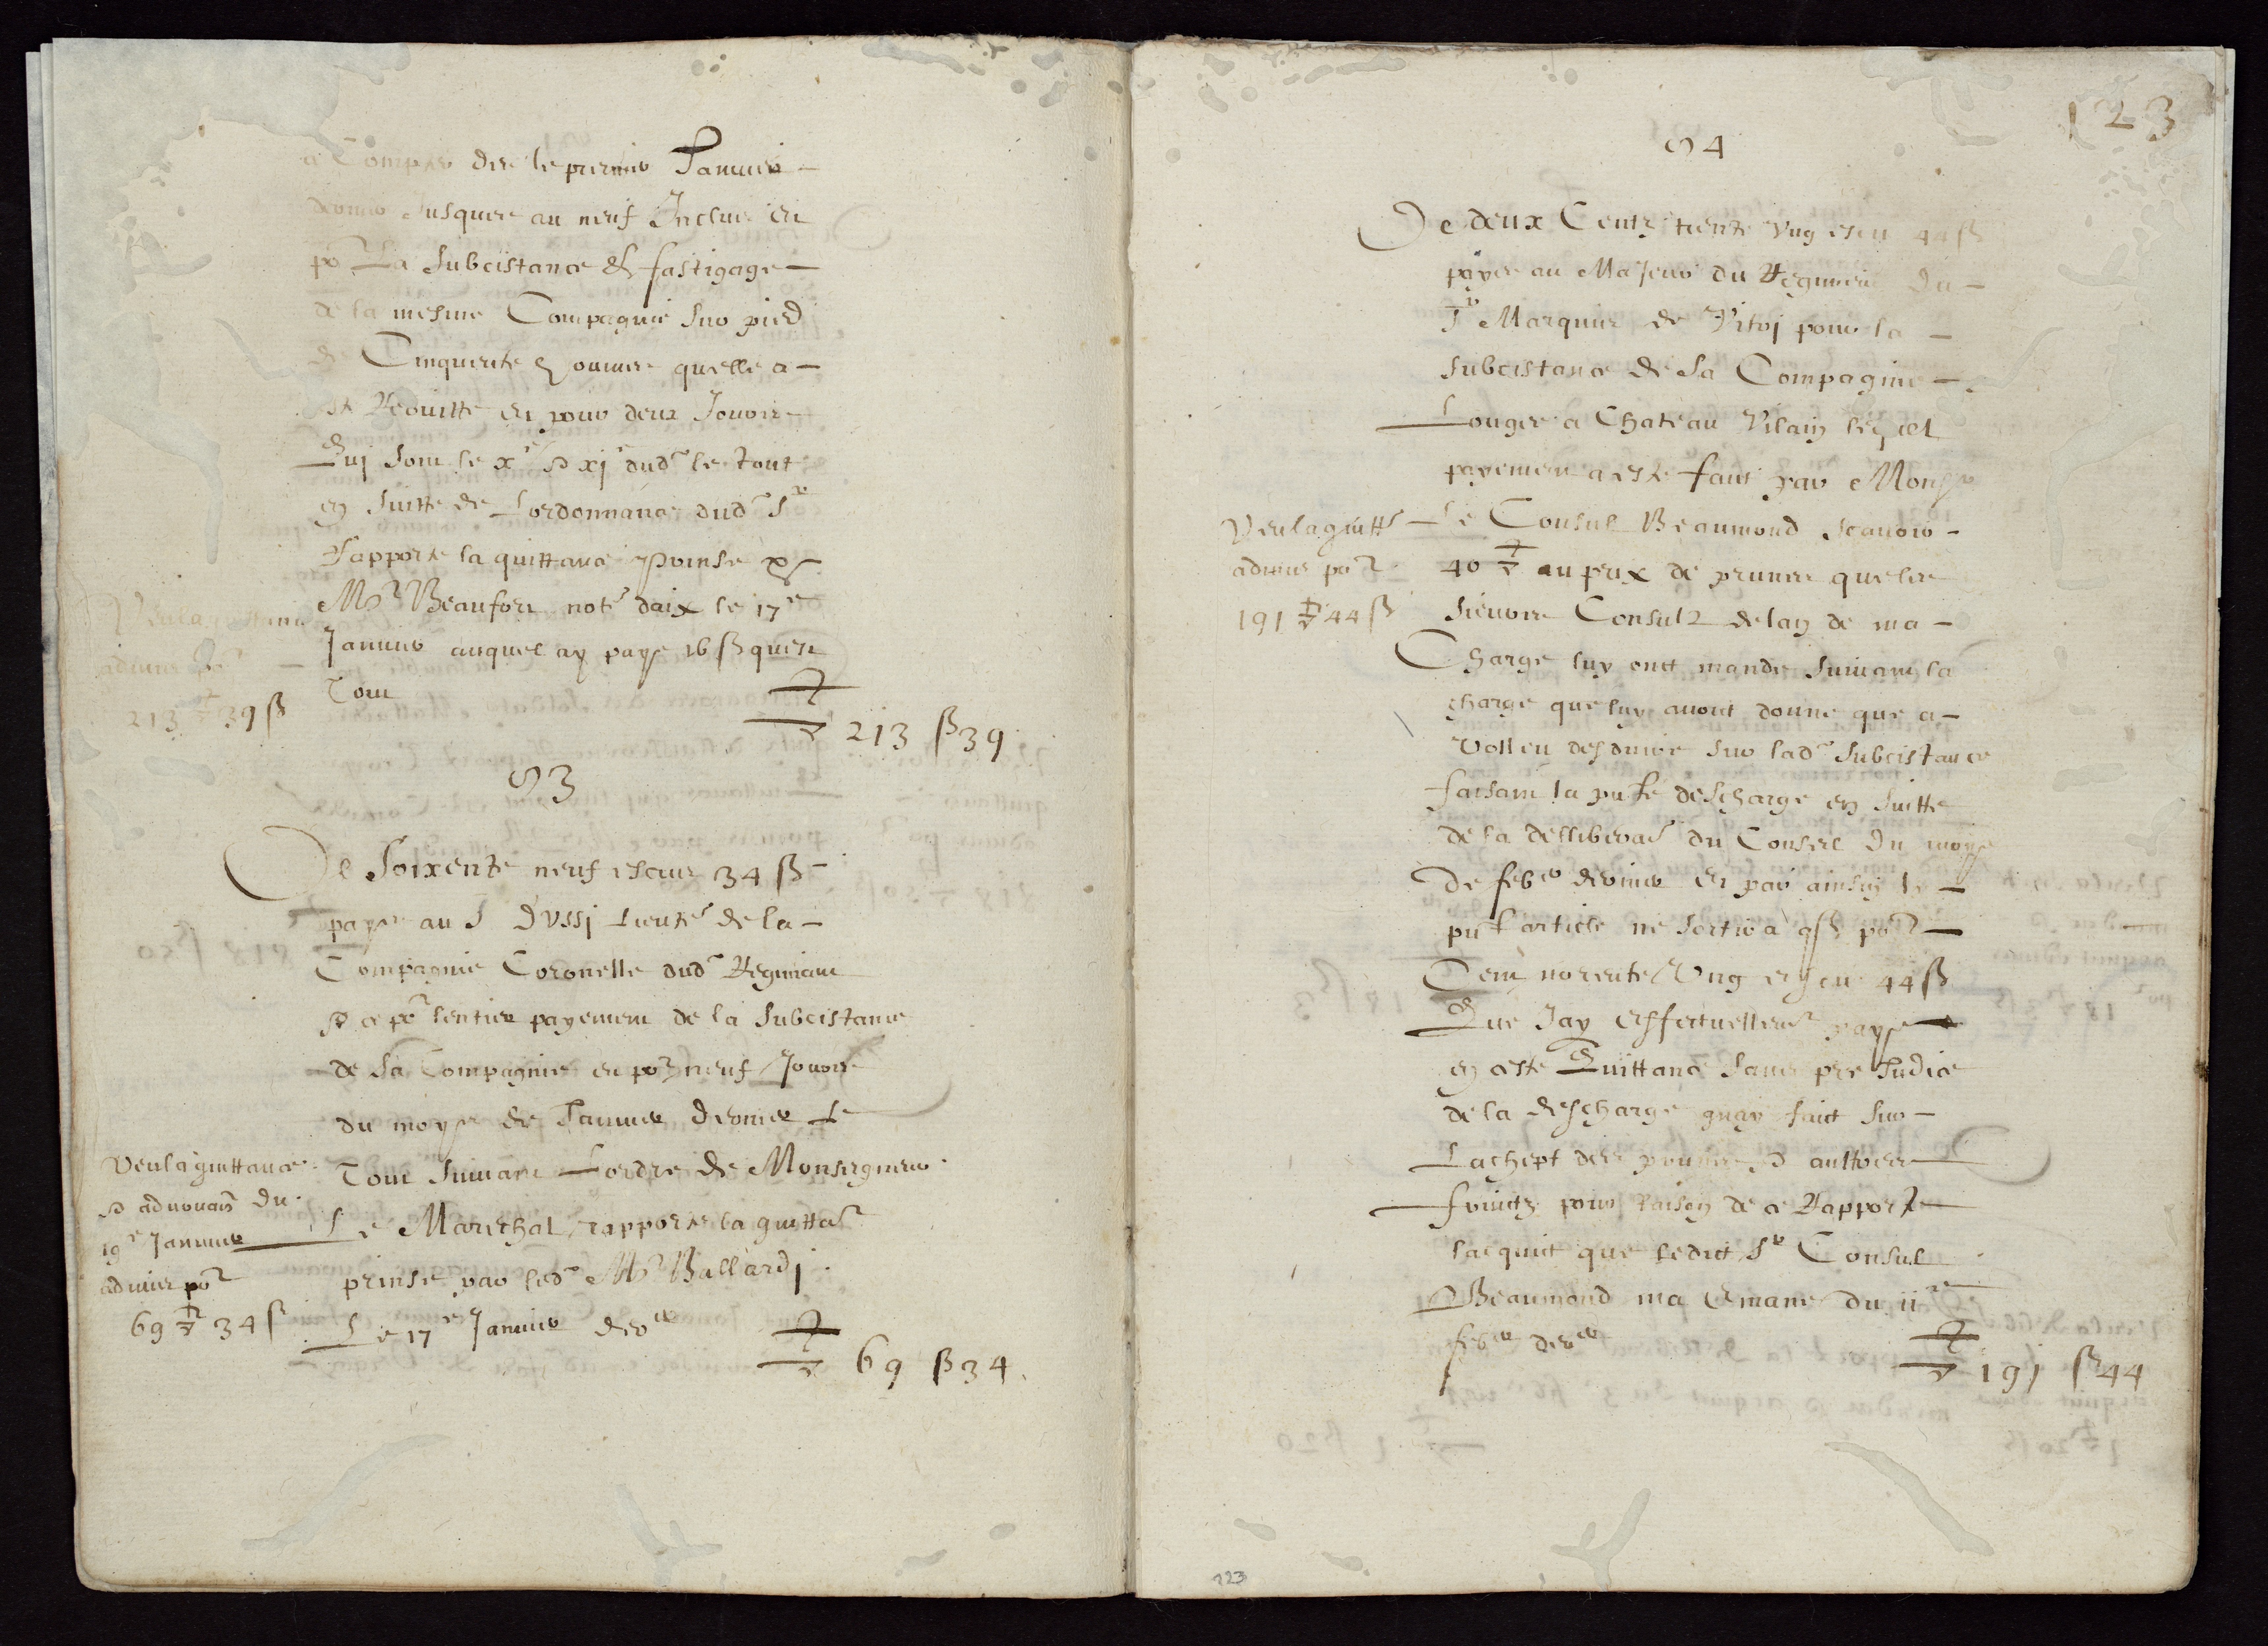 a Compter des le premier Januier
dernier Jusques au neuf Inclues et
po.r La subcistance & fastigage
de la mesme Compagnie sur pied
de Cinquente & ouvire quelle a
Reduitte et pour deux Jours
Qui sont le x.e & xj.e dud. le tout
en suitte de Lordonnance dud. S.r
Rapporte la quittance prinse p.
M.e Beaufort not.e daix le 17.e
Januier auquel ay paye 16 ß quest
Tout
▽ 213 ß 39
Veu la quittance
admis po.r
213 ▽ 39 ß
93
De Soixente neuf escus 34 ß
paye au S. D'Ussi Lieute.t de la
Compagnie Coronelle dud. Regimant
& ce po.r lentier payement de la Subcistance
de sa Compagnie et po.r neuf Jours
du moys de Januier dernier Le
Tout suiuant Lordre de Monseigneur
Le Marechal rapporte la quitta.
prinse par led. M.e Ballardj
Le 17.e Januier der.er
▽ 69 ß 34.
Veu la quittance
& aduouan. du
19.e Januier
admis po.r
69 ▽ 34 ß
123
94
De deux Centz trente Ung escu 44 ß
payes au Majeur du Regiment du
S.r Marquis de Vitri pour la
subcistance de sa Compagnie
Louger a Chateau Vilain lequel
payement a este faict par Mons.r
Le Consul Beaumond scauoir
40 ▽ au prix de prunes que les
sieurs Consulz de lan de ma
Charge luy ont mande suiuant la
charge que luy auont donne que a
Volleu desduire sur lad. subcistance
faisant la p.nte descharge en suitte
de la delliberat. du Conseil du moys
De feb.er dernier et par ainsin le
p.nt article ne sortira q. po.r
Cent nonente Ung escu 44 ß
Que Jay effectuellem.t paye
en ceste Quittance sans pre Judice
de la descharge quay faict sur
Lachept des prunes & aultres
fruictz pour raison de ce Rapporte
lacquit que ledict S.r Consul
Beaumond ma Emane du 11.e
feb.er der.er
▽ 191 ß 44
Veu la quitt.
admis po.r
191 ▽ 44 ß
123